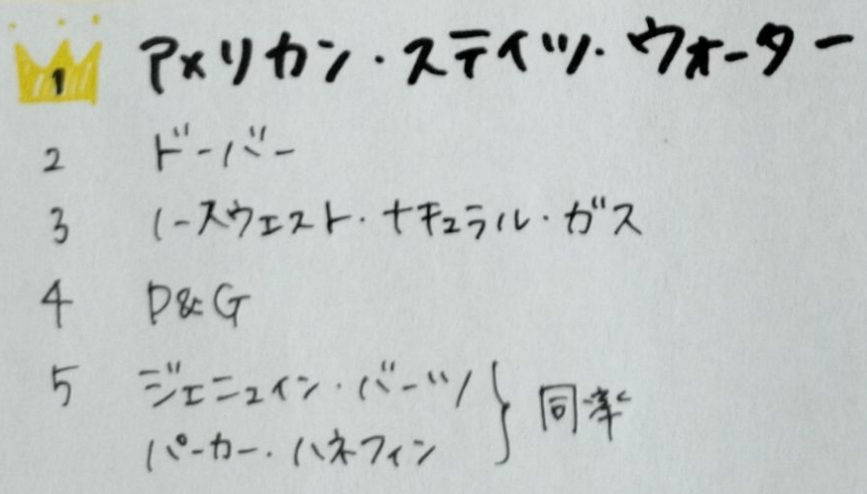 1 アメリカン・ステイツ・ウォーター
2 ドーバー
3 ノースウェスト・ナチュラル・ガス
4 P&G
5 ジェニュイン・バーツ
パーカー・ハネフィン } 同率